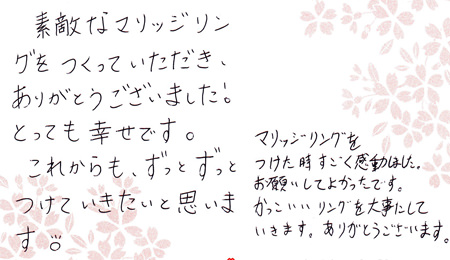 素敵なマリッジリン
グを つくっていただき、
ありがとうございました!
とっても 幸せです。
これからも、ずっと ずっと
つけて いきたいと 思いま
す。
マリッジリングを
つけた時 すごく感動しました。
お願いしてよかったです。
かっこいい リングを 大事にして
いきます。ありがとうございます。